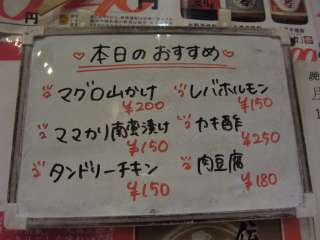 本日のおすすめ
マグロ山かけ
¥200
レバホルモン
¥150
ママカリ南蛮漬け
¥150
カキ酢
¥250
タンドリーチキン
¥150
肉豆腐
¥180